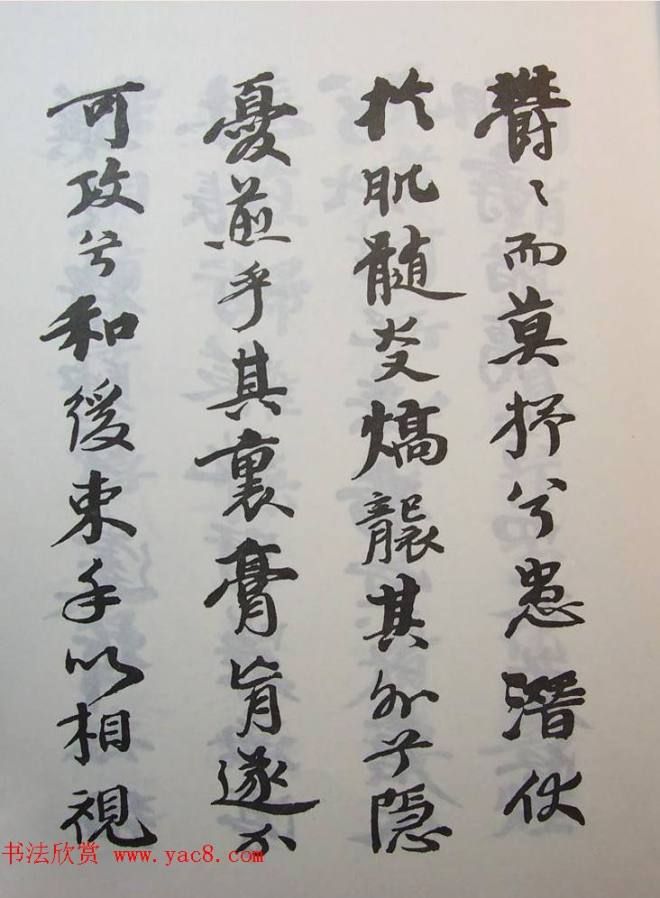 鬱〻而莫抒兮患潛伏
於肌髓炎熇襲其外兮隱
憂煎乎其裏膏肓遂不
可攻兮和緩束手以相視
书法欣赏 www.yac8.com